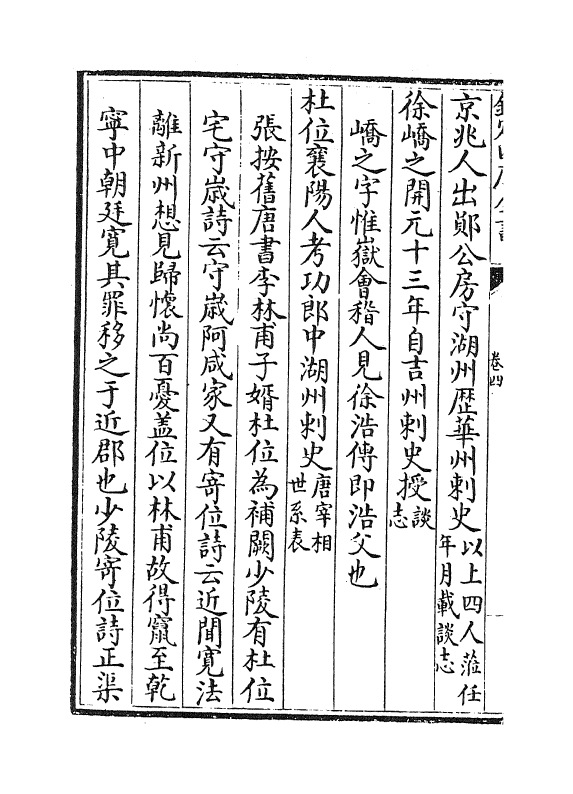 欽定四庫全書
卷四
京兆人出鄖公房守湖州歷華州刺史以上四人蒞任年月載談志
徐嶠之開元十三年自吉州刺史授談志
嶠之字惟嶽會稽人見徐浩傳即浩父也
杜位襄陽人考功郎中湖州刺史唐宰相世系表
張按舊唐書李林甫子婿杜位為補闕少陵有杜位
宅守歳詩云守歳阿咸家又有寄位詩云近聞寛法
離新州想見歸懷尚百憂盖位以林甫故得竄至乾
寧中朝廷寛其罪移之于近郡也少陵寄位詩正渠